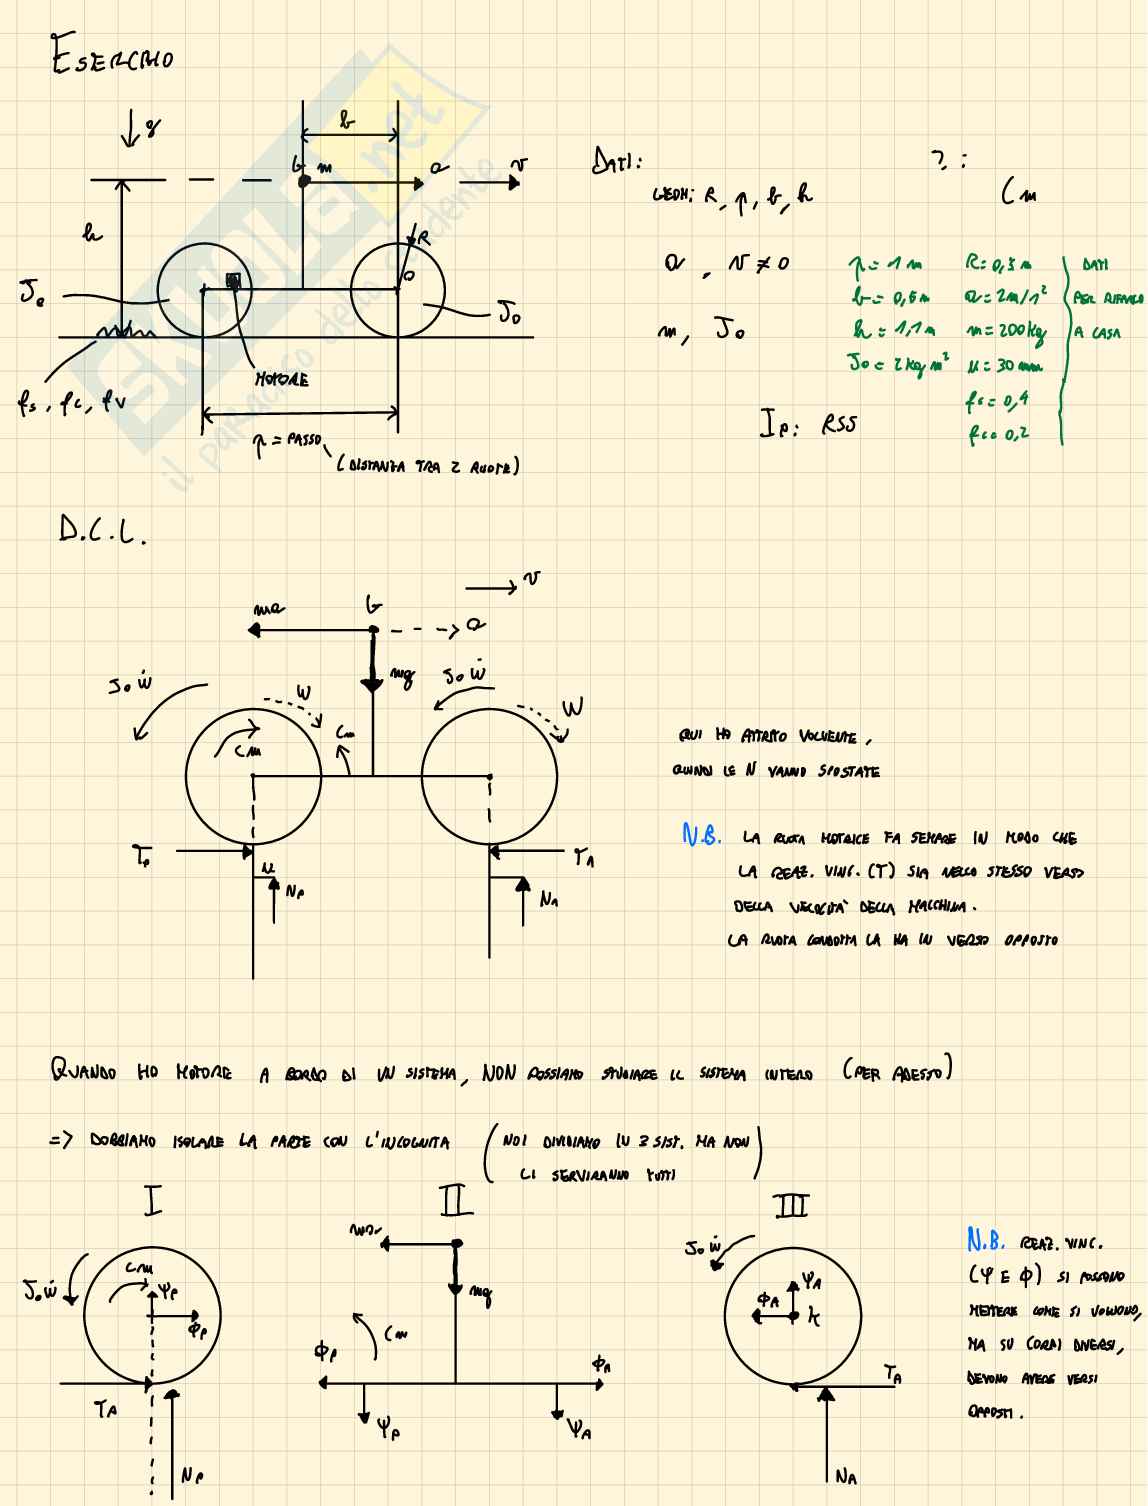 ESERCIZIO
g
b
G m a v
h
R
O
J₀ J₀
MOTORE
fs, fc, fv
p = PASSO
(DISTANZA TRA 2 RUOTE)
DATI:
GEOM: R, p, b, h
a, v ≠ 0
m, J₀
?:
Cm
p = 1 m R = 0,3 m
b = 0,6 m a = 2 m/s²
h = 1,1 m m = 200 kg
J₀ = 2 kg m² u = 30 mm
fs = 0,4
fc = 0,2
DATI
PER RIFARLO
A CASA
Ip: RSS
SKUOLA.net
il paradiso dello studente
D.C.L.
v
ma G a
mg
J₀ ẇ J₀ ẇ
w w
Cm Cm
Tp TA
u
Np NA
QUI HO ATTRITO VOLVENTE,
QUINDI LE N VANNO SPOSTATE
N.B. LA RUOTA MOTRICE FA SEMPRE IN MODO CHE
LA REAZ. VINC. (T) SIA NELLO STESSO VERSO
DELLA VELOCITA' DELLA MACCHINA.
LA RUOTA CONDOTTA LA HA IN VERSO OPPOSTO
QUANDO HO MOTORE A BORDO DI UN SISTEMA, NON POSSIAMO STUDIARE IL SISTEMA INTERO (PER ADESSO)
=> DOBBIAMO ISOLARE LA PARTE CON L'INCOGNITA (NOI DIVIDIAMO IN 3 SIST. MA NON
CI SERVIRANNO TUTTI)
I II III
J₀ ẇ Cm Ψp
Φp
TA
Np
ma
mg
Cm
Φp ΦA
Ψp ΨA
J₀ ẇ
ΨA
ΦA
TA
NA
N.B. REAZ. VINC.
(Ψ E Φ) SI POSSONO
METTERE COME SI VOGLIONO,
MA SU CORPI DIVERSI,
DEVONO AVERE VERSI
OPPOSTI.